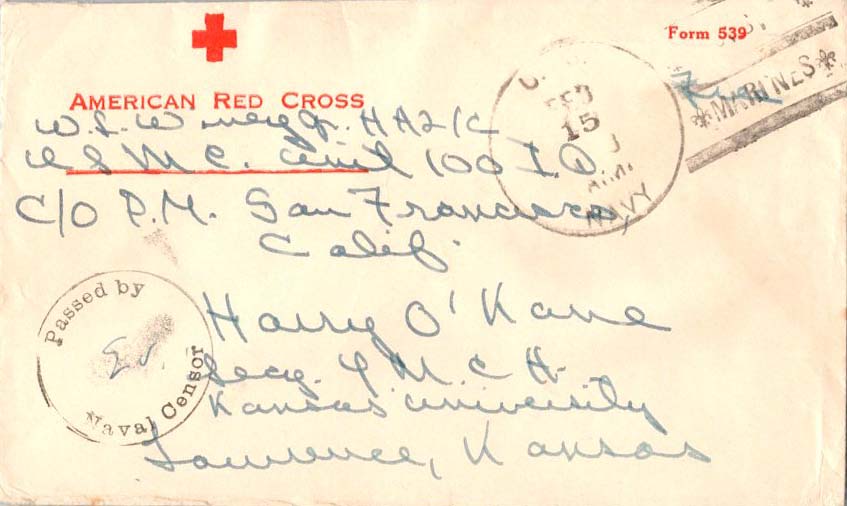 Form 539
AMERICAN RED CROSS
Free
*MARINES*
FEB
15
A.M.
NAVY
W. L. HA2/C
U S M C. Unit 100 I.D.
C/O P.M. San Francisco,
Calif.
Passed by
Naval Censor
Harry O'Kane
Secy. Y M C A.
Kansas University
Lawrence, Kansas